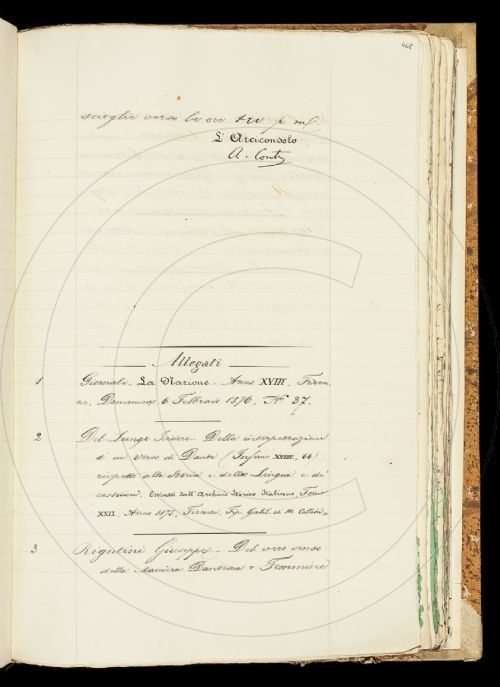 465
scioglie verso le ore tre p. m.
L'Arciconsolo
A. Conti
Allegati
1 Giornale. La Nazione. Anno XVIII. Firen
ze, Domenica 6 Febbraio 1876, N.º 37.
2 Del Lungo Isidoro. Della interpretazione
d'un verso di Dante (Inferno XVIII, 66
rispetto alla storia e della Lingua e dei
costumi. Estratto dall'Archivio Storico Italiano, Tomo
XXII. Anno 1875, Firenze, Tip. Galil. di M. Cellini,
3 Rigutini Giuseppe. Del vero senso
della Maniera Dantesca "Femmine